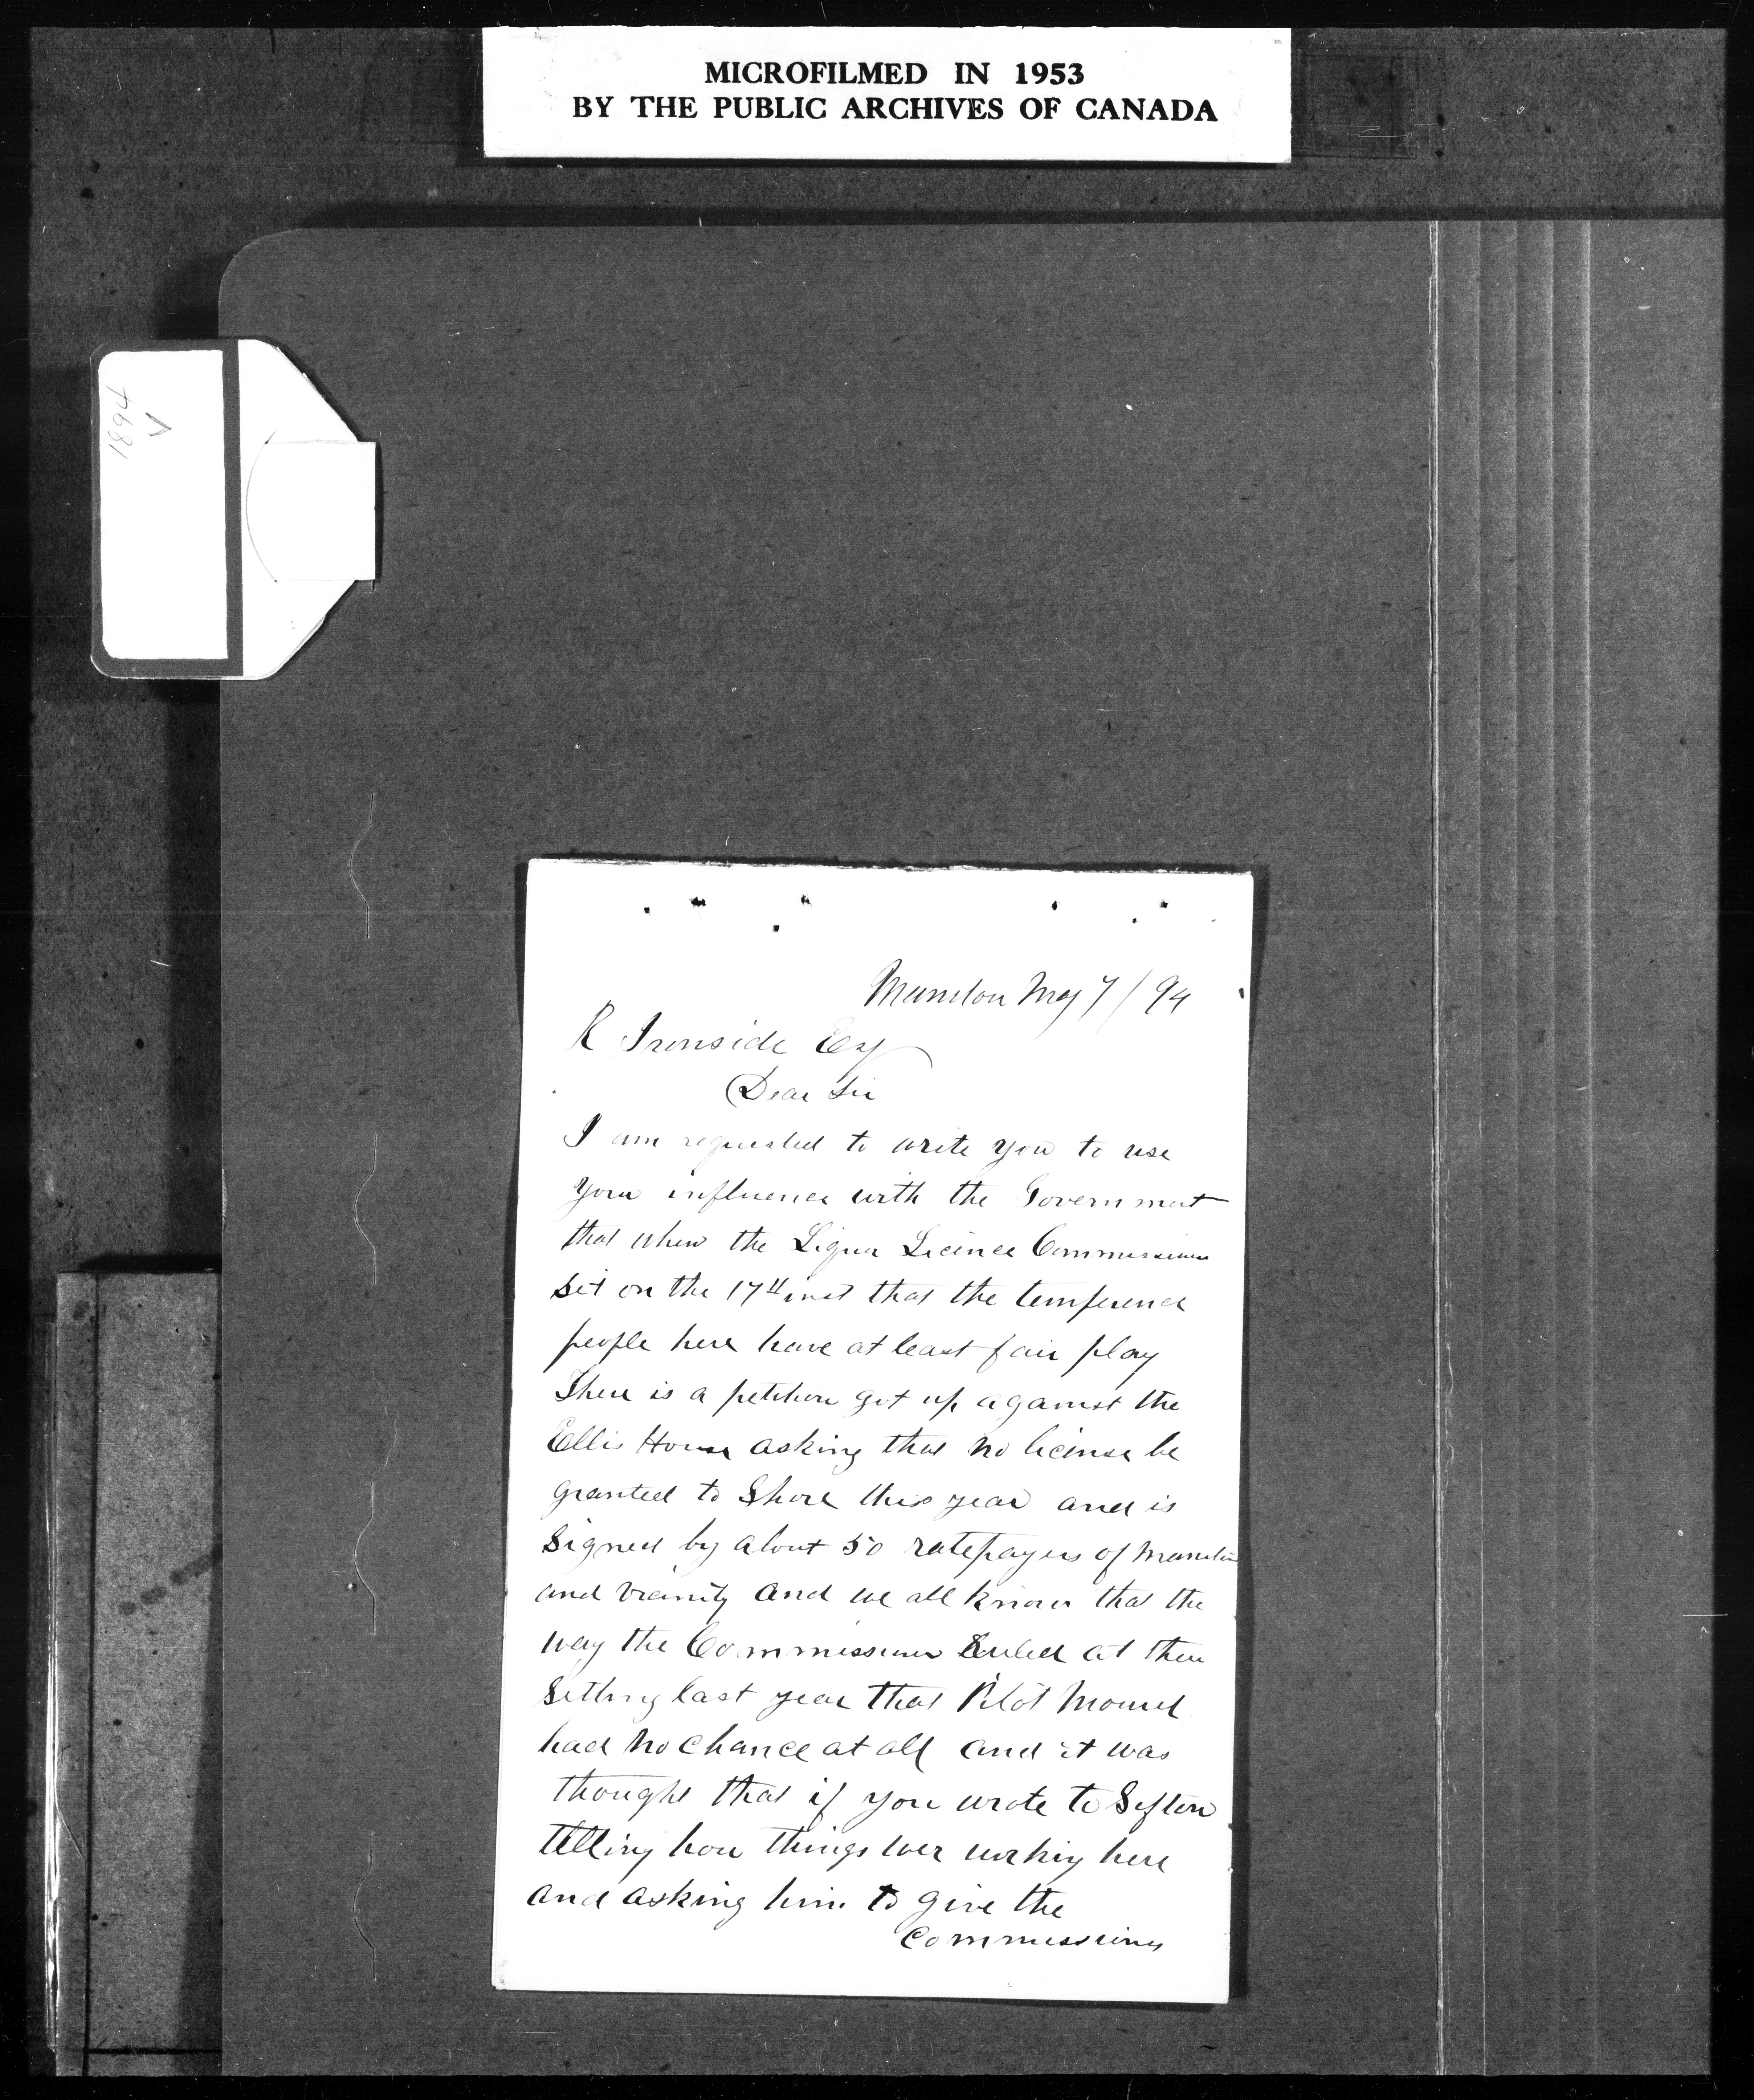 MICROFILMED IN 1953
BY THE PUBLIC ARCHIVES OF CANADA
1894
V
Manitou May 7/94
R Ironside Esq
Dear Sir
I am requested to write you to use
your influence with the Government
that when the Liquor Licence Commissioners
sit on the 17th inst that the temperence
people here have at least fair play
There is a petition got up against the
Ellis House asking that no license be
granted to Shore this year and is
signed by about 50 ratepayers of Manitou
and vicinity and we all know that the
way the Commissioners Ruled at their
sitting last year that Pilot Mound
had no chance at all and it was
thought that if you wrote to Sifton
telling how things wer working here
and asking him to give the
Commissioners